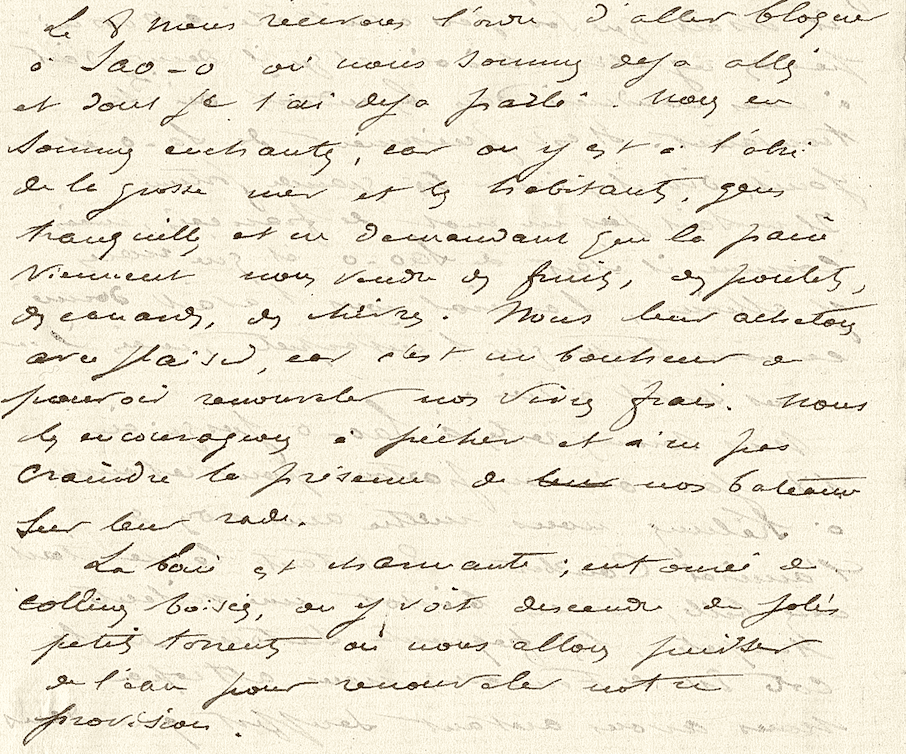 Le 8 nous recevons l'ordre d'aller bloquer
à Sao-o où nous sommes deja allés
et dont je t'ai deja parlé. Nous en
sommes enchantés, car on y est à l'abri
de la grosse mer et les habitants, gens
tranquilles et ne demandant que la paix
viennent nous vendre des fruits, des poulets,
des canards, des chèvres. Nous leur achetons
avec plaisir, car c'est un bonheur de
pouvoir renouveler nos vivres frais. Nous
les encourageons à pêcher et à ne pas
craindre la présence de leur nos bateaux
sur leur rade.
La baie est charmante ; entourée de
collines boisées, on y voit descendre de jolis
petits torrents où nous allons puiser
de l'eau pour renouveler notre
provision.